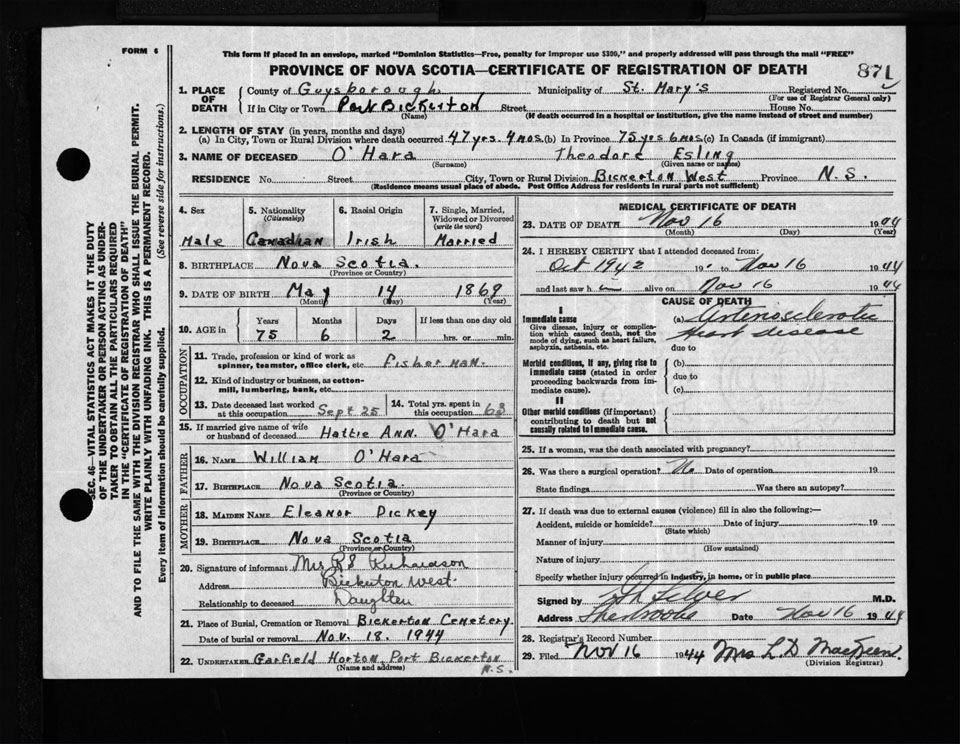 FORM 6
This form if placed in an envelope, marked "Dominion Statistics—Free, penalty for improper use $300," and properly addressed will pass through the mail "FREE"
PROVINCE OF NOVA SCOTIA—CERTIFICATE OF REGISTRATION OF DEATH
871
1. PLACE OF DEATH County of Guysborough Municipality of St. Mary's Registered No.
(For use of Registrar General only)
If in City or Town Port Bickerton Street House No.
(Name) (If death occurred in a hospital or institution, give the name instead of street and number)
2. LENGTH OF STAY (in years, months and days)
(a) In City, Town or Rural Division where death occurred 47 yrs. 4 mos. (b) In Province 75 yrs 6 mos (c) In Canada (if immigrant)
3. NAME OF DECEASED O'Hara Theodore Esling
(Surname) (Given name or names)
RESIDENCE No. Street City, Town or Rural Division Bickerton West Province N.S.
(Residence means usual place of abode. Post Office Address for residents in rural parts not sufficient)
4. Sex 5. Nationality (Citizenship) 6. Racial Origin 7. Single, Married, Widowed or Divorced (write the word)
Male Canadian Irish Married
8. BIRTHPLACE Nova Scotia.
(Province or Country)
9. DATE OF BIRTH May 14 1869
(Month) (Day) (Year)
10. AGE in Years Months Days If less than one day old
75 6 2 hrs. or min.
OCCUPATION
11. Trade, profession or kind of work as spinner, teamster, office clerk, etc Fisherman.
12. Kind of industry or business, as cotton-mill, lumbering, bank, etc.
13. Date deceased last worked at this occupation Sept 25 14. Total yrs. spent in this occupation 63
15. If married give name of wife or husband of deceased Hattie Ann. O'Hara
FATHER
16. NAME William O'Hara
17. BIRTHPLACE Nova Scotia.
(Province or Country)
MOTHER
18. MAIDEN NAME Eleanor Dickey
19. BIRTHPLACE Nova Scotia
(Province or Country)
20. Signature of informant Mrs R S Richardson
Address Bickerton West.
Relationship to deceased Daughter
21. Place of Burial, Cremation or Removal Bickerton Cemetery.
Date of burial or removal Nov. 18. 1944
22. UNDERTAKER Garfield Horton, Port Bickerton N.S.
(Name and address)
MEDICAL CERTIFICATE OF DEATH
23. DATE OF DEATH Nov 16 1944
(Month) (Day) (Year)
24. I HEREBY CERTIFY that I attended deceased from:
Oct 1942 19 to Nov 16 1944
and last saw h im alive on Nov 16 1944
CAUSE OF DEATH
I
Immediate cause
Give disease, injury or complication which caused death, not the mode of dying, such as heart failure, asphyxia, asthenia, etc.
(a) Arteriosclerotic
heart disease
due to
Morbid conditions, if any, giving rise to immediate cause (stated in order proceeding backwards from immediate cause).
(b)
due to
(c)
II
Other morbid conditions (if important) contributing to death but not causally related to immediate cause.
25. If a woman, was the death associated with pregnancy?
26. Was there a surgical operation? No Date of operation 19
State findings Was there an autopsy?
27. If death was due to external causes (violence) fill in also the following:—
Accident, suicide or homicide? Date of injury 19
(State which)
Manner of injury
(How sustained)
Nature of injury
Specify whether injury occurred in industry, in home, or in public place
Signed by M.D.
Address Sherbrooke Date Nov 16 1944
28. Registrar's Record Number
29. Filed Nov 16 1944 Mrs L D MacKeen.
(Division Registrar)
SEC. 46—VITAL STATISTICS ACT MAKES IT THE DUTY
OF THE UNDERTAKER OR PERSON ACTING AS UNDER-
TAKER TO OBTAIN ALL THE PARTICULARS REQUIRED
IN THE "CERTIFICATE OF REGISTRATION OF DEATH"
AND TO FILE THE SAME WITH THE DIVISION REGISTRAR WHO SHALL ISSUE THE BURIAL PERMIT.
WRITE PLAINLY WITH UNFADING INK. THIS IS A PERMANENT RECORD.
Every item of information should be carefully supplied. (See reverse side for instructions.)